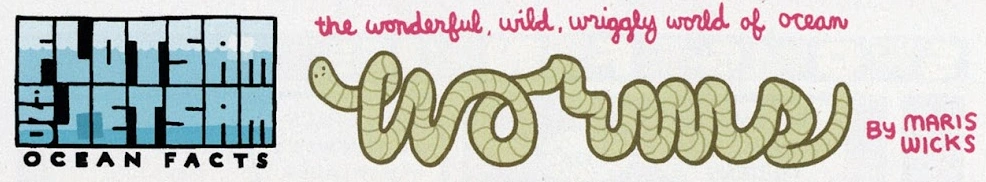 FLOTSAM
AND JETSAM
OCEAN FACTS
the wonderful, wild, wriggly world of ocean
worms
BY MARIS
WICKS